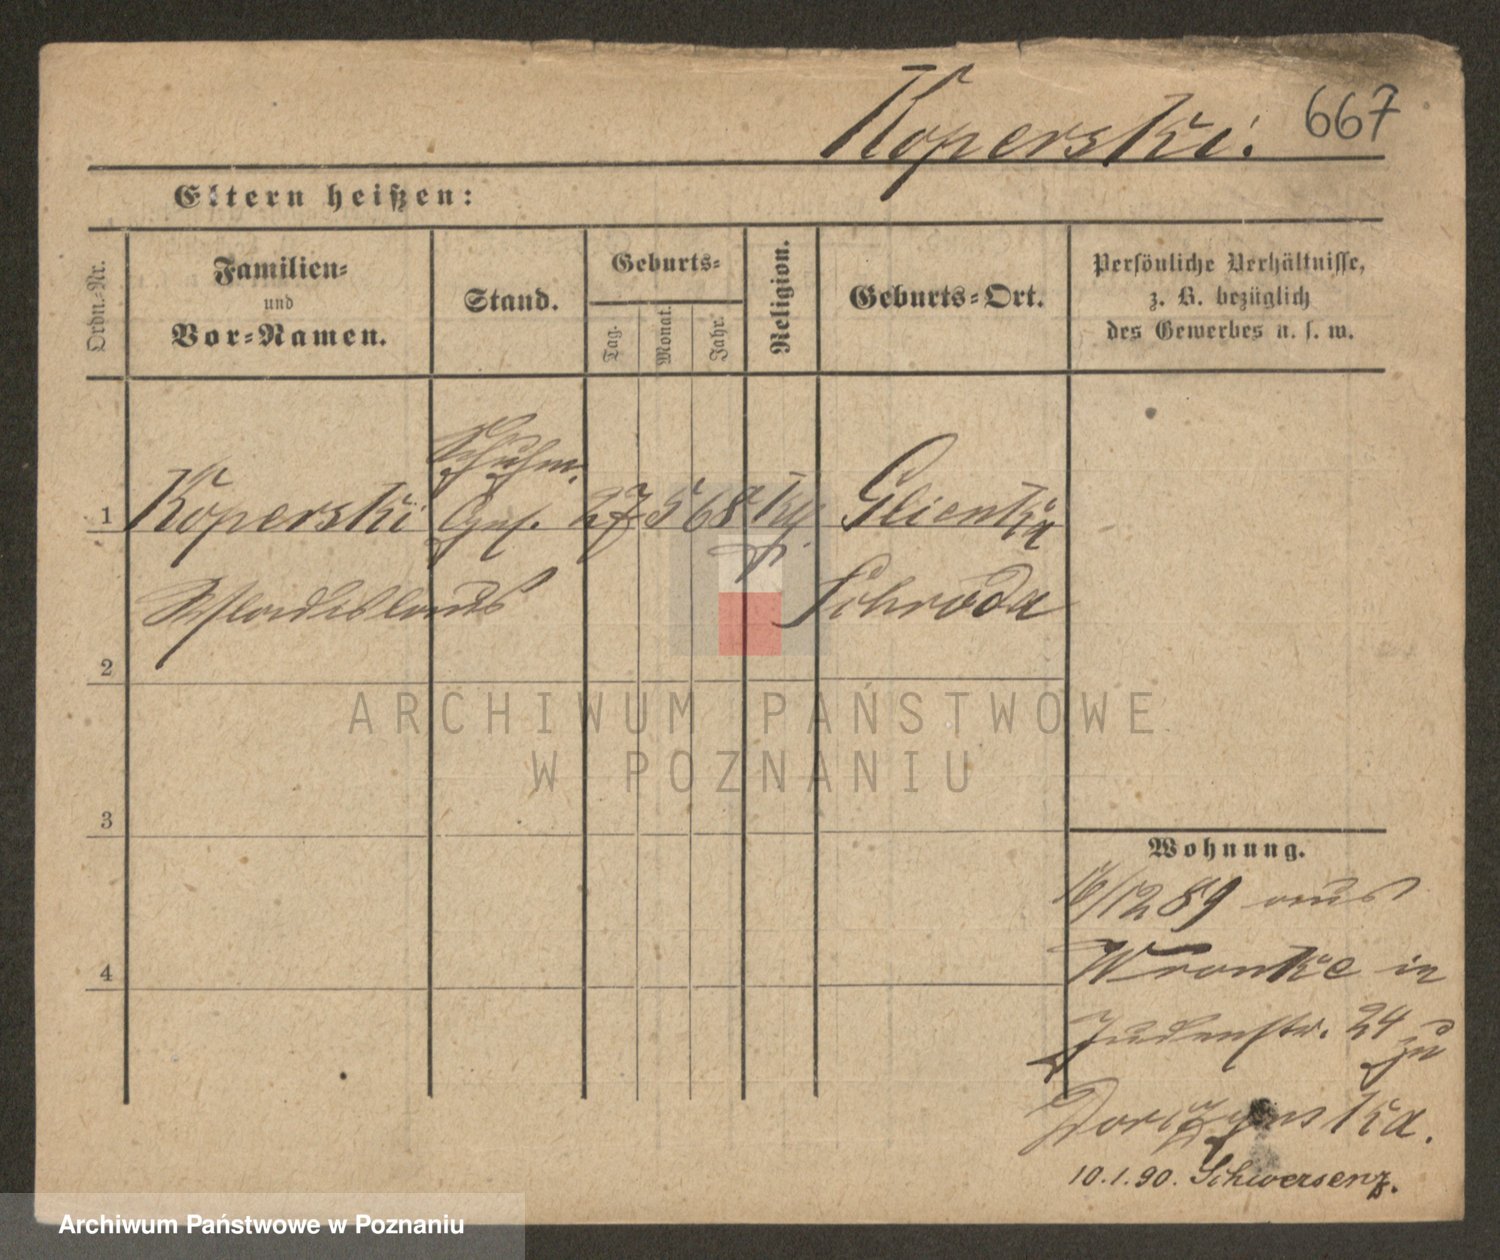 Koperski. 667
Eltern heißen:
Ordn.-Nr.
Familien-
und
Vor-Namen.
Stand.
Geburts-
Tag.
Monat.
Jahr.
Religion.
Geburts-Ort.
Persönliche Verhältnisse,
z. B. bezüglich
des Gewerbes u. s. w.
Schuhm.
1 Koperski Ges. 27 5 68 Glienka
Schroda
2
3
4
Wohnung.
16/12 89 aus
Wronke in
Judenstr. 24 zu
10.1.90. Schwersenz.
ARCHIWUM PAŃSTWOWE
W POZNANIU
Archiwum Państwowe w Poznaniu